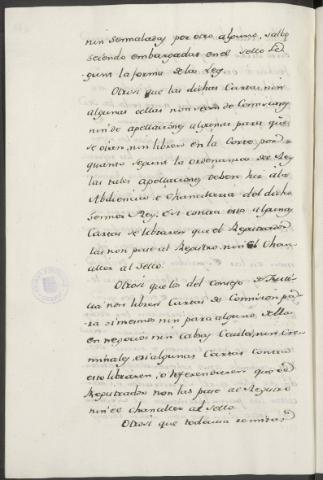 nin sennaladas por otro alguno, salvo
seiendo embargadas en el sello se-
gunt la forma de las Leys
Otrosi que las dichas Cartas, nin
algunas dellas non sean de Comisiones
nin de apellaciones algunas para que
se vean, nin libren en la Corte, por
quanto segunt la ordenanza del Rey
las tales apellaciones deben hir a la
Abdiencia e Chancilleria del dicho
Sennor Rey. E si contra esto algunas
Cartas se libraren que el Registrador
las non pase al Registro nin el Chan-
ciller al Sello.
Otrosi que los del Consejo de Justi-
cia non libren Cartas de Comision pa-
ra si mesmos nin para alguno dellos
en negocios nin cabsas Ceviles, nin Cre-
minales, e si algunas Cartas contra
esto libraren, o referendaren que el
Registrador non las pase al Registro
nin el Chanciller al Sello.
Otrosi que todavia